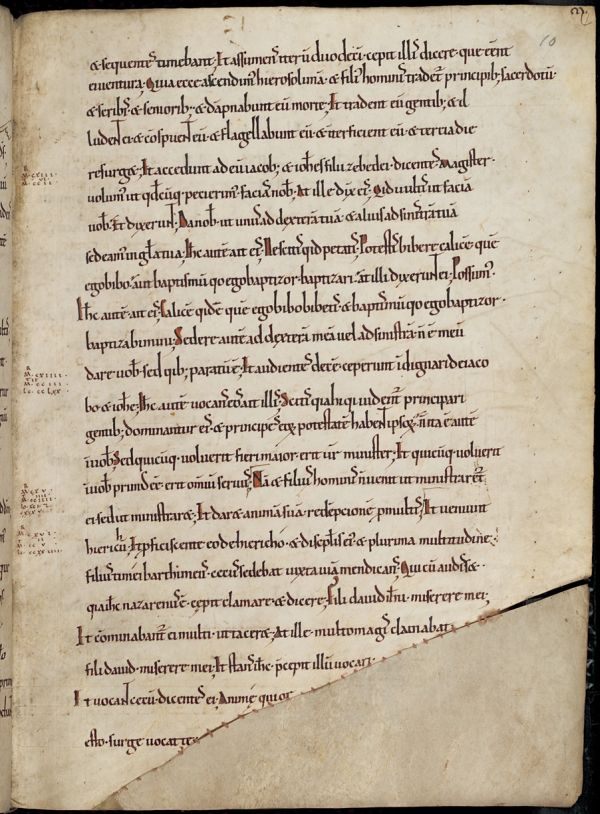 & sequentes timebant; Et assumens iteru duodeci. cepit illis dicere. que erent
ei uentura; Quia ecce ascendimus hierosolima. & filius hominis tradet principib; sacerdotu.
& scribis. & seniorib; & dapnabunt eu morte; Et tradent eu gentib; & il
ludent ei. & cospuent eu. & flagellabunt eu. & interficient eu. & tercia die
resurget; Et accedunt ad eu iacob; & iohes filii zebedei. dicentes. Magister.
uolumus ut qdcuq; pecierimus. facias nob; At ille dix eis; Qid uultis ut facia
uob; Et dixerunt; Da nob. ut unus ad dexterā tuā. & alius ad sinistrā tuā
sedeamus in gla tua; Ihc aute ait eis; Nescitis qid petatis; Potestis bibere calice. que
ego bibo. aut baptismu qo ego baptizor. baptizari. At illi dixerunt ei; Possum;
Ihc aute ait eis; Calice qide que ego bibo bibetis. & baptismu qo ego baptizor.
baptizabimini; Sedere aute ad dexterā meā uel ad sinistrā. n e meu
dare uob. sed qib; paratu e; Et audientes dece. ceperunt idignari de iaco
bo & iohe; Ihc aute uocans eos ait illis; Scitis quia hi qui uident principari
gentib; dominantur eis. & principes eoꝝ potestate habent ipsoꝝ; n ita e aute
i uob; Sed quicuq; uoluerit fieri maior. erit ur minister; Et quicuq; uoluerit
i uob prim ee. erit omiu seruus; Nā & filius hominis n uenit ut ministraret
ei. sed ut ministraret; Et daret animā suā redepcione p multis; Et ueniunt
hiericħ; Et pficiscente eo de hiericho. & discipulis eius. & plurima multitudine.
filius timei barthimeus. cecus sedebat iuxta uiā mendicans; Qui cu audisset
quia ihc nazarenus e. cepit clamare. & dicere; Fili dauid ihu. miserere mei;
Et cominabant ei multi. ut taceret; At ille multo magis clamabat.
fili dauid. miserere mei; Et stans ihc. pcepit illu uocari.
Et uocant cecu. dicentes ei; Animequior
esto. surge uocat te;